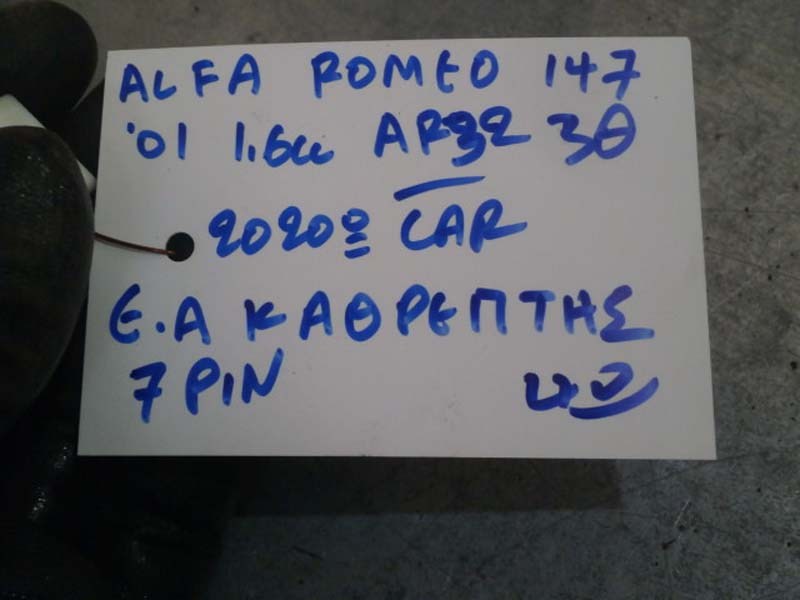 ALFA ROMEO 147
'01 1.6cc AR32 3Θ
2020º CAR
Ε.Α ΚΑΘΡΕΠΤΗΣ
7 PIN